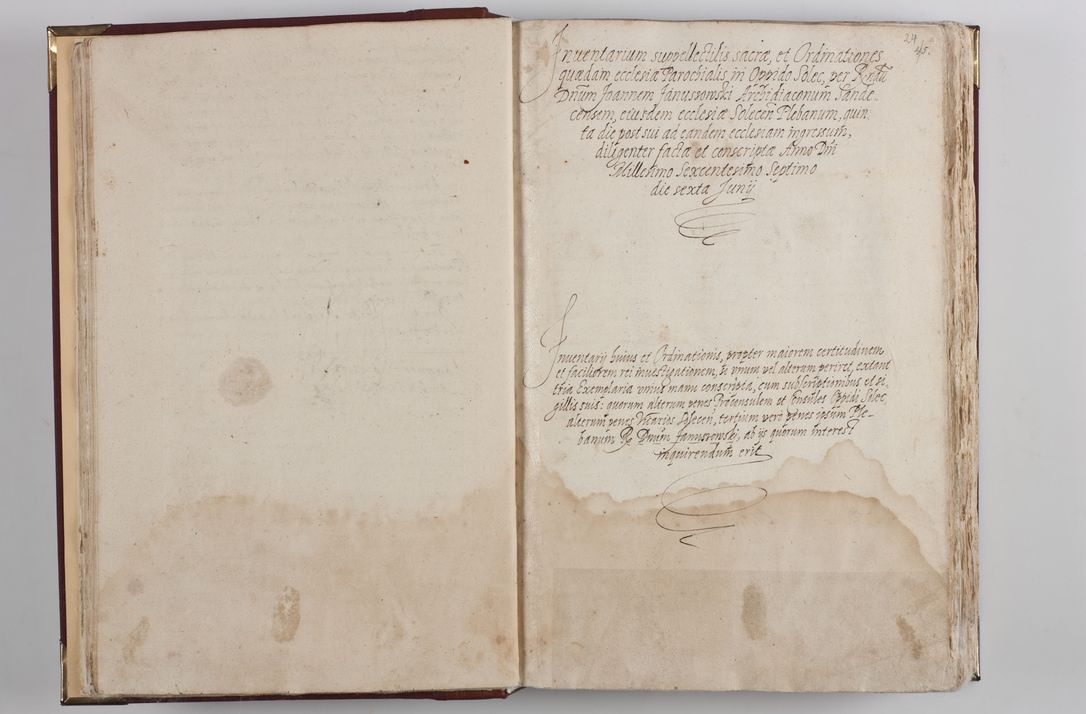 24
45.
Inventarium suppellectilis sacræ, et Ordinationes
quædam ecclesiæ Parochialis in Oppido Solec, per Rndū
Dnūm Joannem Januszowski Archidiaconum Sande-
censem, eiusdem ecclesiæ Solecen̄ Plebanum, quin
ta die post sui ad eandem ecclesiam ingressum,
diligenter facta et conscriptæ Anno Dn̄i
Millesimo Sexcentesimo Septimo
die sexta Junij
Inventarij huius et Ordinationis, propter maiorem certitudinem
et faciliorem rei investigationem, si vnum vel alterum periret, extant
tria Exemplaria vnius manu conscripta, cum subscriptionibus et si-
gillis suis: quorum alterum penes Præconsulem et Consules Oppidi Solec,
alterum penes Vicarios Solecen̄, tertium vero penes ipsum Ple-
banum Rd Dnūm Januszowski, ab ijs quorum interest
inquirendum erit